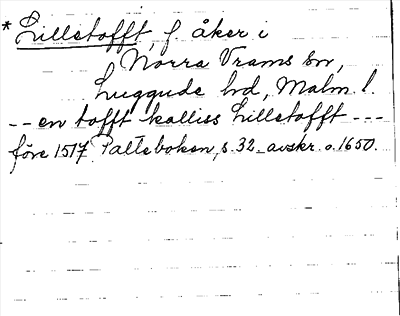 * Lilletofft, f. åker i
Norra Vrams sn,
Luggude hd, Malm. l.
-- en tofft kalliss Lilletofft ---
före 1517. Palteboken, s. 32. avskr. o. 1650.